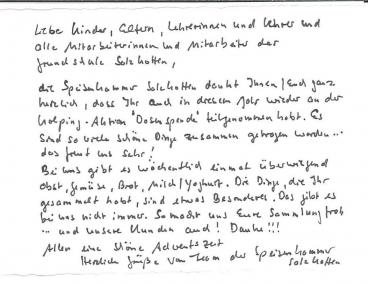 Liebe Kinder, Eltern, Lehrerinnen und Lehrer und
alle Mitarbeiterinnen und Mitarbeiter der
Grundschule Salzkotten,
die Speisenkammer Salzkotten dankt Ihnen / Euch ganz
herzlich, dass Ihr auch in diesem Jahr wieder an der
Kolping-Aktion "Dosenspende" teilgenommen habt. Es
sind so viele schöne Dinge zusammen getragen worden...
das freut uns sehr!
Bei uns gibt es wöchentlich einmal überwiegend
Obst, Gemüse, Brot, Milch / Yoghurt. Die Dinge, die Ihr
gesammelt habt, sind etwas Besonderes. Das gibt es
bei uns nicht immer. So macht uns Eure Sammlung froh
... und unsere Kunden auch! Danke!!!
Allen eine schöne Adventszeit
Herzlich Grüße vom Team der Speisenkammer
Salzkotten